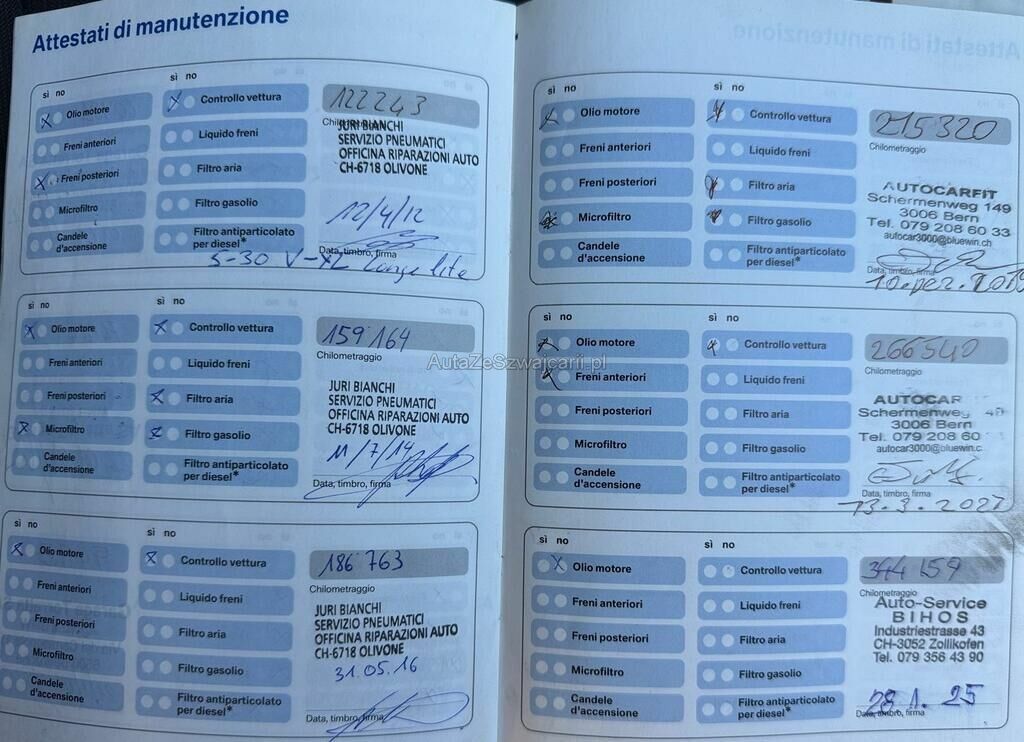 Attestati di manutenzione
sì no
sì no
Olio motore
Controllo vettura
122243
Freni anteriori
Liquido freni
JURI BIANCHI
SERVIZIO PNEUMATICI
OFFICINA RIPARAZIONI AUTO
CH-6718 OLIVONE
Freni posteriori
Filtro aria
Microfiltro
Filtro gasolio
12/4/12
Candele
d'accensione
Filtro antiparticolato
per diesel*
Data, timbro, firma
5-30
sì no
sì no
Olio motore
Controllo vettura
159164
Chilometraggio
Freni anteriori
Liquido freni
Freni posteriori
Filtro aria
JURI BIANCHI
SERVIZIO PNEUMATICI
OFFICINA RIPARAZIONI AUTO
CH-6718 OLIVONE
Microfiltro
Filtro gasolio
11/7/14
Candele
d'accensione
Filtro antiparticolato
per diesel*
Data, timbro, firma
sì no
sì no
Olio motore
Controllo vettura
186 763
Chilometraggio
Freni anteriori
Liquido freni
JURI BIANCHI
SERVIZIO PNEUMATICI
OFFICINA RIPARAZIONI AUTO
CH-6718 OLIVONE
Freni posteriori
Filtro aria
31.05.16
Microfiltro
Filtro gasolio
Candele
d'accensione
Filtro antiparticolato
per diesel*
Data, timbro, firma
sì no
sì no
Olio motore
Controllo vettura
215320
Chilometraggio
Freni anteriori
Liquido freni
Freni posteriori
Filtro aria
AUTOCARFIT
Schermenweg 149
3006 Bern
Tel. 079 208 60 33
autocar3000@bluewin.ch
Microfiltro
Filtro gasolio
Candele
d'accensione
Filtro antiparticolato
per diesel*
Data, timbro, firma
sì no
sì no
Olio motore
Controllo vettura
266540
Chilometraggio
Freni anteriori
Liquido freni
Freni posteriori
Filtro aria
AUTOCAR
Schermenweg
3006 Bern
Tel. 079 208 60
autocar3000@bluewin.c
Microfiltro
Filtro gasolio
Candele
d'accensione
Filtro antiparticolato
per diesel*
Data, timbro, firma
sì no
sì no
Olio motore
Controllo vettura
344 159
Chilometraggio
Freni anteriori
Liquido freni
Auto-Service
BIHOS
Industriestrasse 43
CH-3052 Zollikofen
Tel. 079 356 43 90
Freni posteriori
Filtro aria
Microfiltro
Filtro gasolio
28.1.25
Candele
d'accensione
Filtro antiparticolato
per diesel*
Data, timbro, firma
AutaZeSzwajcarii.pl